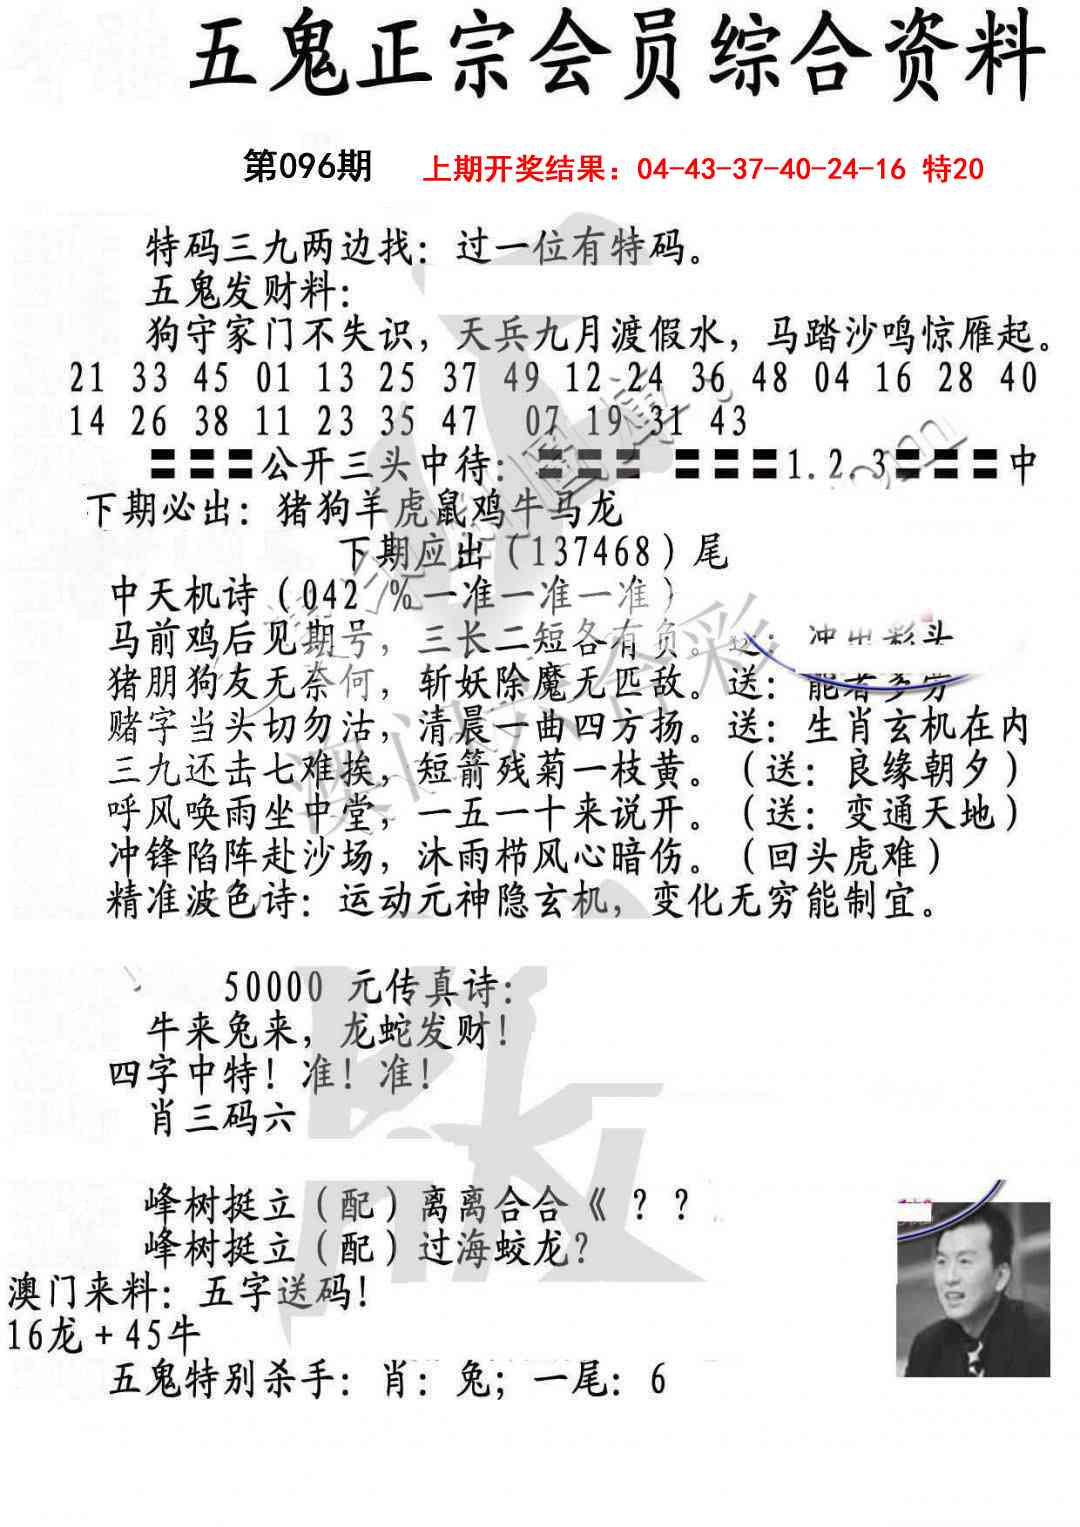 五鬼正宗会员综合资料
第096期 上期开奖结果：04-43-37-40-24-16 特20
特码三九两边找：过一位有特码。
五鬼发财料：
狗守家门不失识，天兵九月渡假水，马踏沙鸣惊雁起。
21 33 45 01 13 25 37 49 12 24 36 48 04 16 28 40
14 26 38 11 23 35 47 07 19 31 43
〓〓〓公开三头中待：〓〓〓 〓〓〓1.2.3〓〓〓中
下期必出：猪狗羊虎鼠鸡牛马龙
下期应出（137468）尾
中天机诗（042 %一准一准一准）
马前鸡后见期号，三长二短各有负。送：冲出彩头
猪朋狗友无奈何，斩妖除魔无匹敌。送：能者多劳
赌字当头切勿沽，清晨一曲四方扬。送：生肖玄机在内
三九还击七难挨，短箭残菊一枝黄。（送：良缘朝夕）
呼风唤雨坐中堂，一五一十来说开。（送：变通天地）
冲锋陷阵赴沙场，沐雨栉风心暗伤。（回头虎难）
精准波色诗：运动元神隐玄机，变化无穷能制宜。
50000 元传真诗：
牛来兔来，龙蛇发财！
四字中特！准！准！
肖三码六
峰树挺立（配）离离合合《 ？ ？
峰树挺立（配）过海蛟龙？
澳门来料：五字送码！
16龙+45牛
五鬼特别杀手：肖：兔；一尾：6
澳门六合彩